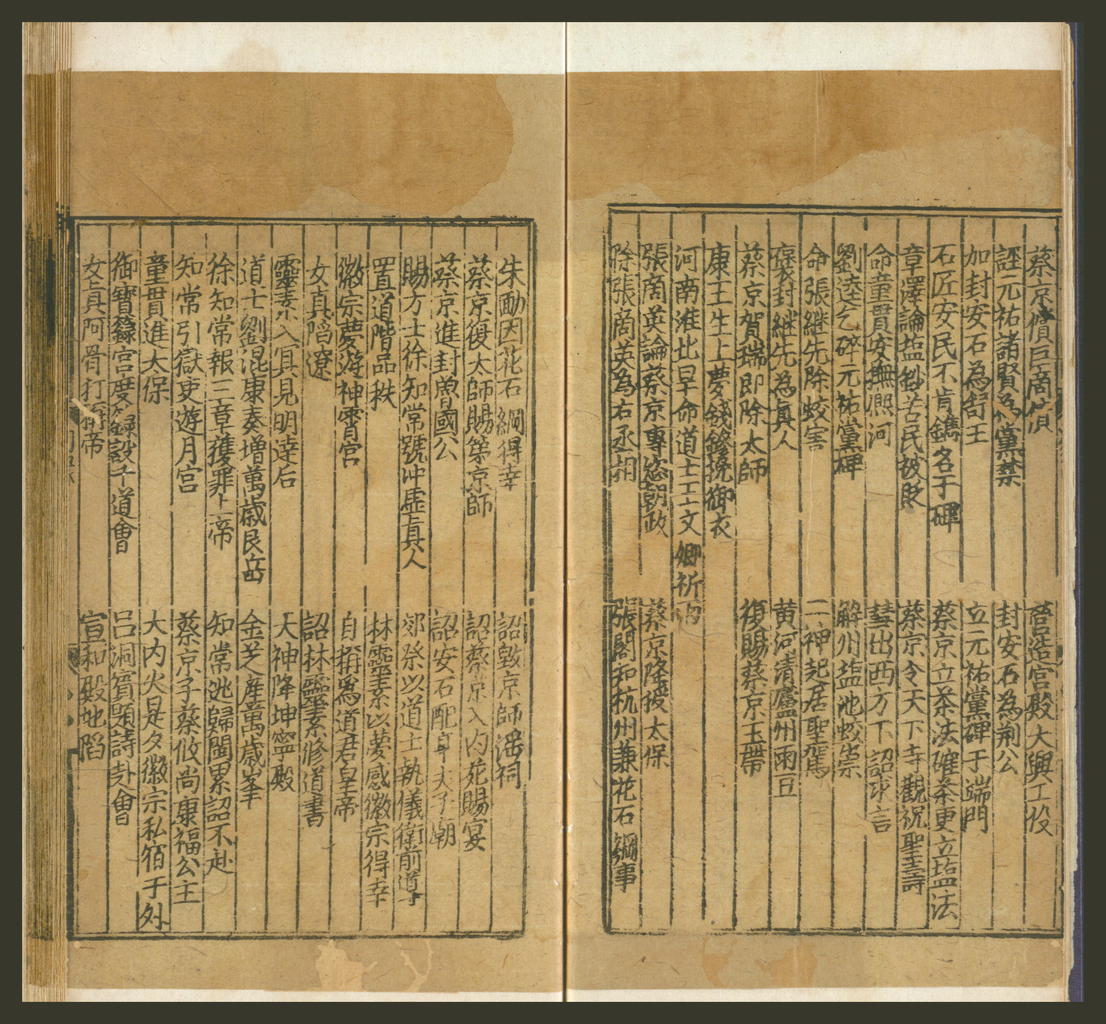 蔡京償巨商債
營造宮殿大興工役
誣元祐諸賢為黨禁
封安石為荆公
加封安石為舒王
立元祐黨碑于端門
石匠安民不肯鐫名于碑
蔡京立茶法榷茶更立塩法
章澤論塩鈔苦民被貶
蔡京令天下寺觀祝聖壽
命童貫安撫熈河
彗出西方下詔求言
劉逵乞碎元祐黨碑
解州塩池蛟祟
命張継先除蛟害
二神起居聖駕
褒封継先為真人
黄河清廬州雨豆
蔡京賀瑞即除太師
復賜蔡京玉帶
康王生上夢錢鏐挽御衣
河南淮北旱命道士王文卿祈
張啇英論蔡京專恣朝政
蔡京降授太保
除張啇英為右丞相
張閣知杭州兼花石綱事
朱勔因花石綱得幸
詔毀京師滛祠
蔡京復太師賜第京師
詔蔡京入内苑賜宴
蔡京進封魯國公
詔安石配享夫子廟
賜方士徐知常號冲虛真人
郊祭以道士執儀衛前導
置道階品秩
林靈素以夢感徽宗得幸
徽宗夢游神霄宮
自稱為道君皇帝
女真䧟遼
詔林靈素修道書
靈素入冥見明逹后
天神降坤寧殿
道士劉混康奏增萬歲艮岳
金芝産萬歲峯
徐知常報三章獲罪上帝
知常迯歸閩累詔不赴
知常引獄吏遊月宮
蔡京子蔡攸尚康福公主
童貫進太保
大内火是夕徽宗私宿于外
御寶籙宮度
設千道會
吕洞賓題詩赴會
女真阿骨打
帝
宣和殿地䧟